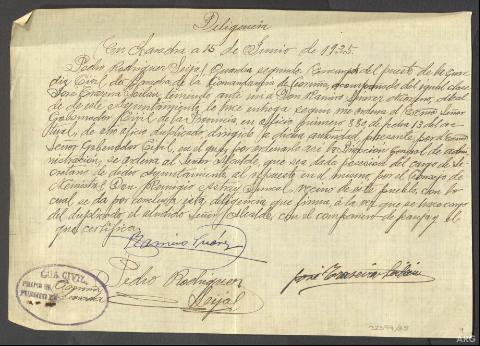 Diligencia
En Aranda a 15 de Junio de 1925.
Pedro Rodriguez Seijal, Guardia segundo, Comandante del puesto de la Guar
dia Civil de Aranda de la Comandancia de acompañado del igual clase
José teniendo ante mi a Don Ramiro Suárez Alcalde
de este Ayuntamiento le hice entrega segun me ordena el Excmo Señor
Gobernador Civil de la Provincia en oficio primero 880 de fecha 13 del
actual, de otro oficio duplicado dirigido a dicha autoridad presente, por el Excmo
Señor Gobernador Civil, en el que, por ordenarlo asi la Dirección General de Admi
nistración, se ordena al Señor Alcalde, que sea dada posesion del cargo de Se
cretario de dicho Ayuntamiento al repuesto en el mismo, por el Consejo de
Ministros Don Remigio vecino de este pueblo, con lo
cual se da por concluida esta diligencia que firma, a la vez que se hace cargo
del duplicado el aludido Señor Alcalde, con el componente de pareja y el
que certifica.
Ramiro Suárez
Pedro Rodriguez
Seijal
José
GUA CIVIL
PUESTO DE
32599/85
ARG